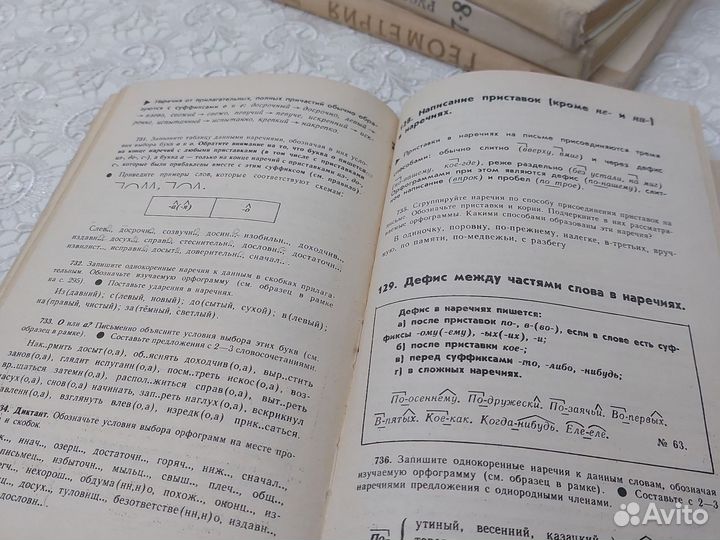 ГЕОМЕТРИЯ
7-8
▶ Наречия от прилагательных, полных причастий обычно обра-
зуются с суффиксами о и е: досрочный → досрочно, левый →
→ влево, свежий → свежо, певучий → певуче, искренний → иск-
ренне, испытанный → испытанно, кроткий → накротко.
731. Запишите таблицу данными наречиями, обозначая в них усло-
вия выбора о и а. Обратите внимание на то, что буква о пишется
на конце наречий с любыми приставками (в том числе с приставками
из-, до-, с-), а буква а — только на конце наречий с приставками из-, до-,
с-, которые были прибавлены вместе с этим суффиксом (см. правило).
● Приведите примеры слов, которые соответствуют схемам:
-о(а) -а
Слев.., досрочн.., созвучн.., досин.., изобильн.., доходчив..,
издавн.., досух.., справ.., стеснительн.., дословн.., достаточн..,
извилист.., исправ.., досыт.., доверительн.., сначал.. .
732. Запишите однокоренные наречия к данным в скобках прилага-
тельным. Обозначьте изучаемую орфограмму (см. образец в рамке
на с. 295). ● Поставьте ударения в наречиях.
Из(давний); с(левый, новый); до(сытый, сухой); в(левый);
на(правый, чистый); за(тёмный, светлый).
733. О или а? Письменно объясните условия выбора этих букв (см.
образец в рамке). ● Составьте предложения с 2—3 словосочетаниями.
Нак..рмить досыт(о,а), об..яснять доходчив(о,а), выр..стить
занов(о,а), глядит испуганн(о,а), посм..треть искос(о,а), возв-
вр..щаться затемн(о,а), распол..житься справ(о,а), выт..реть
насух(о,а), снов(о,а) начинать, зап..реть наглух(о,а), вскрикнул
подавленн(о,а), взглянуть влев(о,а), изредк(о,а) прик..саться.
34. Диктант. Обозначьте условия выбора орфограмм на месте про-
и скобок.
к.., инач.., озерц.., достаточн.., горяч.., ниж.., сначал..,
письмец.., избыточн.., мыльц.., свыш.., плеч.., общ..,
.., нехорош.., обдума(нн,н)о, похож.., оконц.., из-
.., досух.., туловищ.., безответстве(нн,н)о, издавн..,
дословн..
128. Написание приставок (кроме не- и ни-)
в наречиях.
▶ Приставки в наречиях на письме присоединяются тремя
способами: обычно слитно (вверху, вмиг) и через дефис
(по-нашему, кое-где), реже раздельно (без устали, на миг)
Орфограммами при этом являются дефис (по-нашему), слит-
ное написание (впрок) и пробел (по трое).
735. Сгруппируйте наречия по способу присоединения приставок на
письме. Обозначьте приставки и корни. Подчеркните в них рассматри-
ваемые орфограммы. Какими способами образованы эти наречия?
В одиночку, поровну, по-прежнему, налегке, в-третьих, вруч-
ную, по памяти, по-медвежьи, с разбегу
129. Дефис между частями слова в наречиях.
Дефис в наречиях пишется:
а) после приставок по-, в-(во-), если в слове есть суф-
фиксы -ому(-ему), -ых(-их), -и;
б) после приставки кое-;
в) перед суффиксами -то, -либо, -нибудь;
г) в сложных наречиях.
По-осеннему. По-дружески. По-заячьи. Во-первых.
В-пятых. Кое-как. Когда-нибудь. Еле-еле.
№ 63.
736. Запишите однокоренные наречия к данным словам, обозначая
изучаемую орфограмму (см. образец в рамке). ● Составьте с 2—3
наречиями предложения с однородными членами.
По- { утиный, весенний, казацкий
Avito